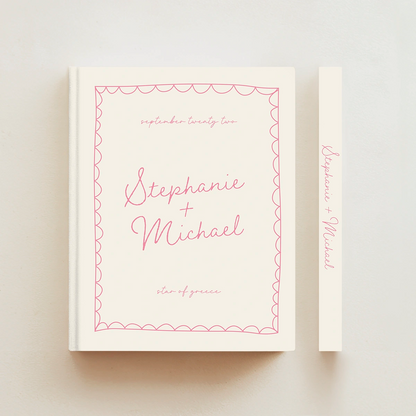 september twenty two
Stephanie
+
Michael
star of greece
Stephanie + Michael